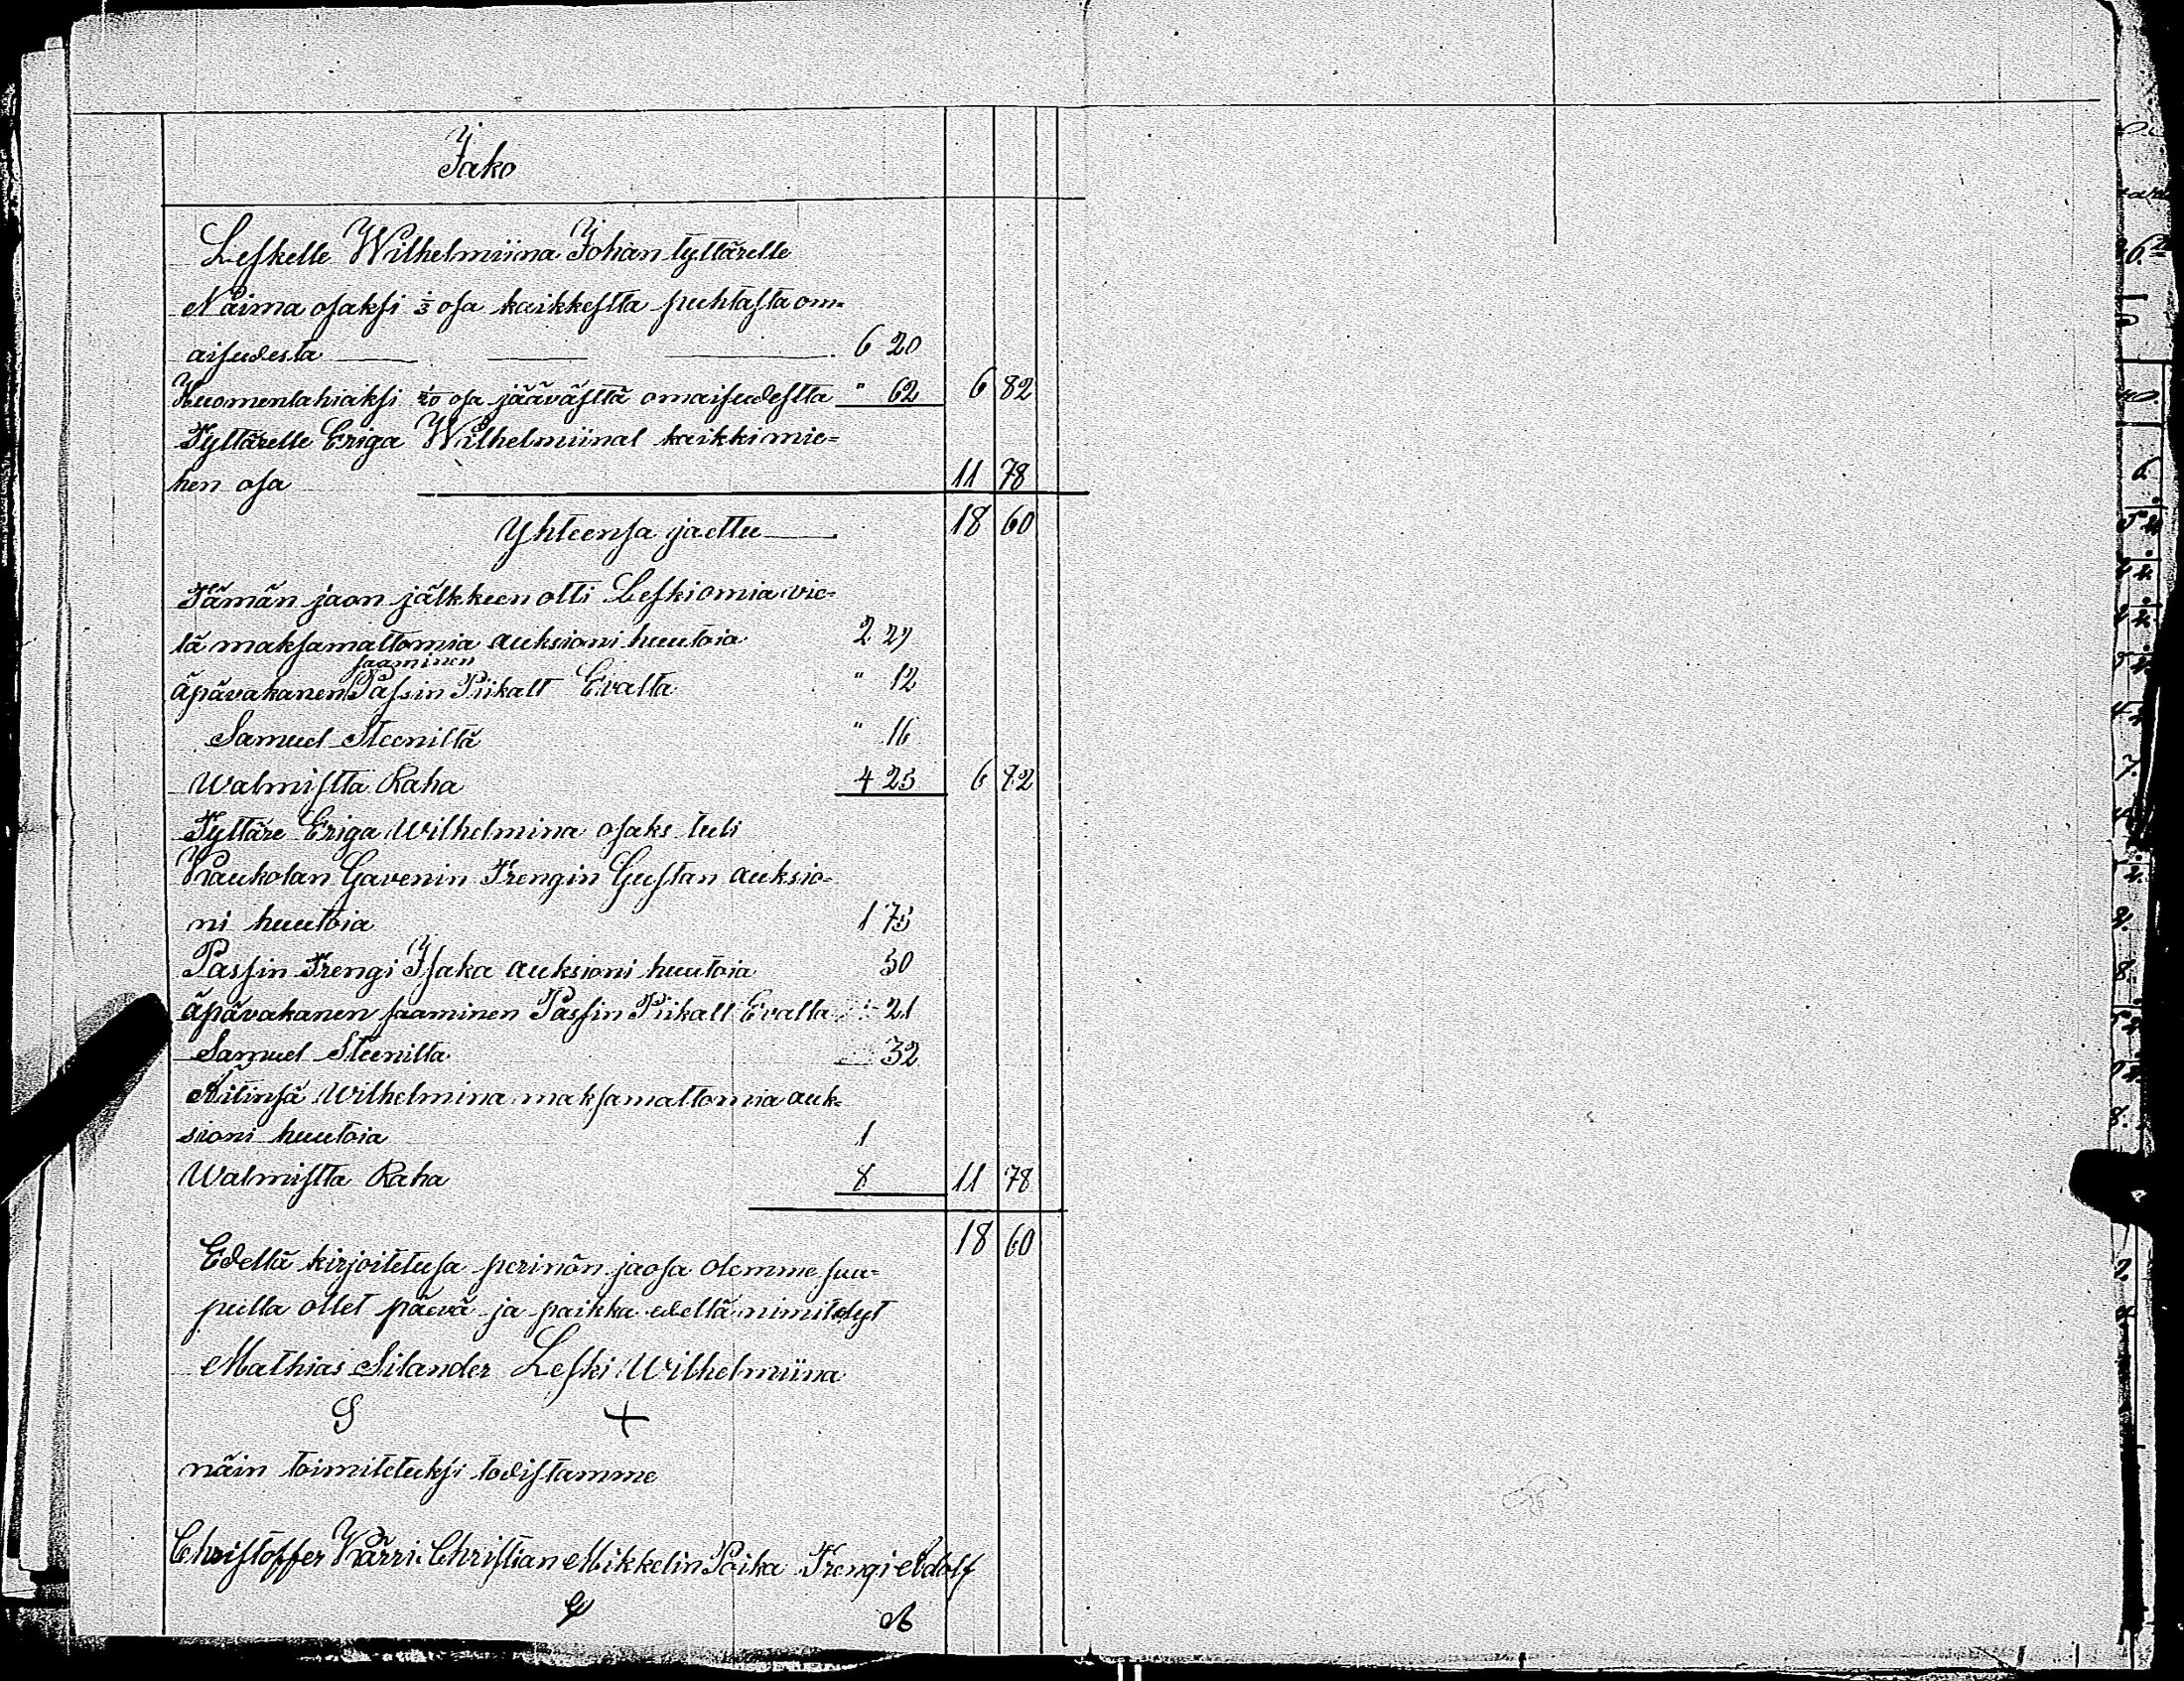 Jako
Leskelle Wilhelmiina Johan tyttärelle
Naima osaksi 1/3 osa kaikkestta puhtasta om=
aisudesta 6 20
Huomenlahiaksi 1/20 osa jäävästtä omaisudestta " 62 6 82
Tyttärelle Eriga Wilhelmiinal kaikki mie=
hen osa 11 78
Yhteensa jaettu 18 60
Tämän jaon jälkkeen otti Leski omia vie=
lä maksamattomia auksioni huutoia 2 29
saaminen
äpävakanen Passin Piikalt Evalta " 12
Samuel Steeniltä " 16
Walmistta Raha 4 25 6 82
Tyttäre Eriga Wilhelmina osaks tuli
Kaukolan Gavenin Trengin Gustan auksio=
ni huutoia 1 75
Passin Trengi Isaka auksioni huutoia 50
äpävakanen saaminen Passin Piikalt Evalta 21
Samuel Steenilta 32
Äitinsä Wilhelmina maksamattomia auk=
sioni huutoia 1
Walmistta Raha 8 11 78
18 60
Edellä kirjoitetusa perinön jaosa olemme suu=
pulla ollet päevä ja paikka edellä nimitetyt
Mathias Silander Leski Wilhelmiina
S +
näin toimitetuksi todistamme
Christoffer Kärri Christian Mikkelin Poika Trengi Adolf
A